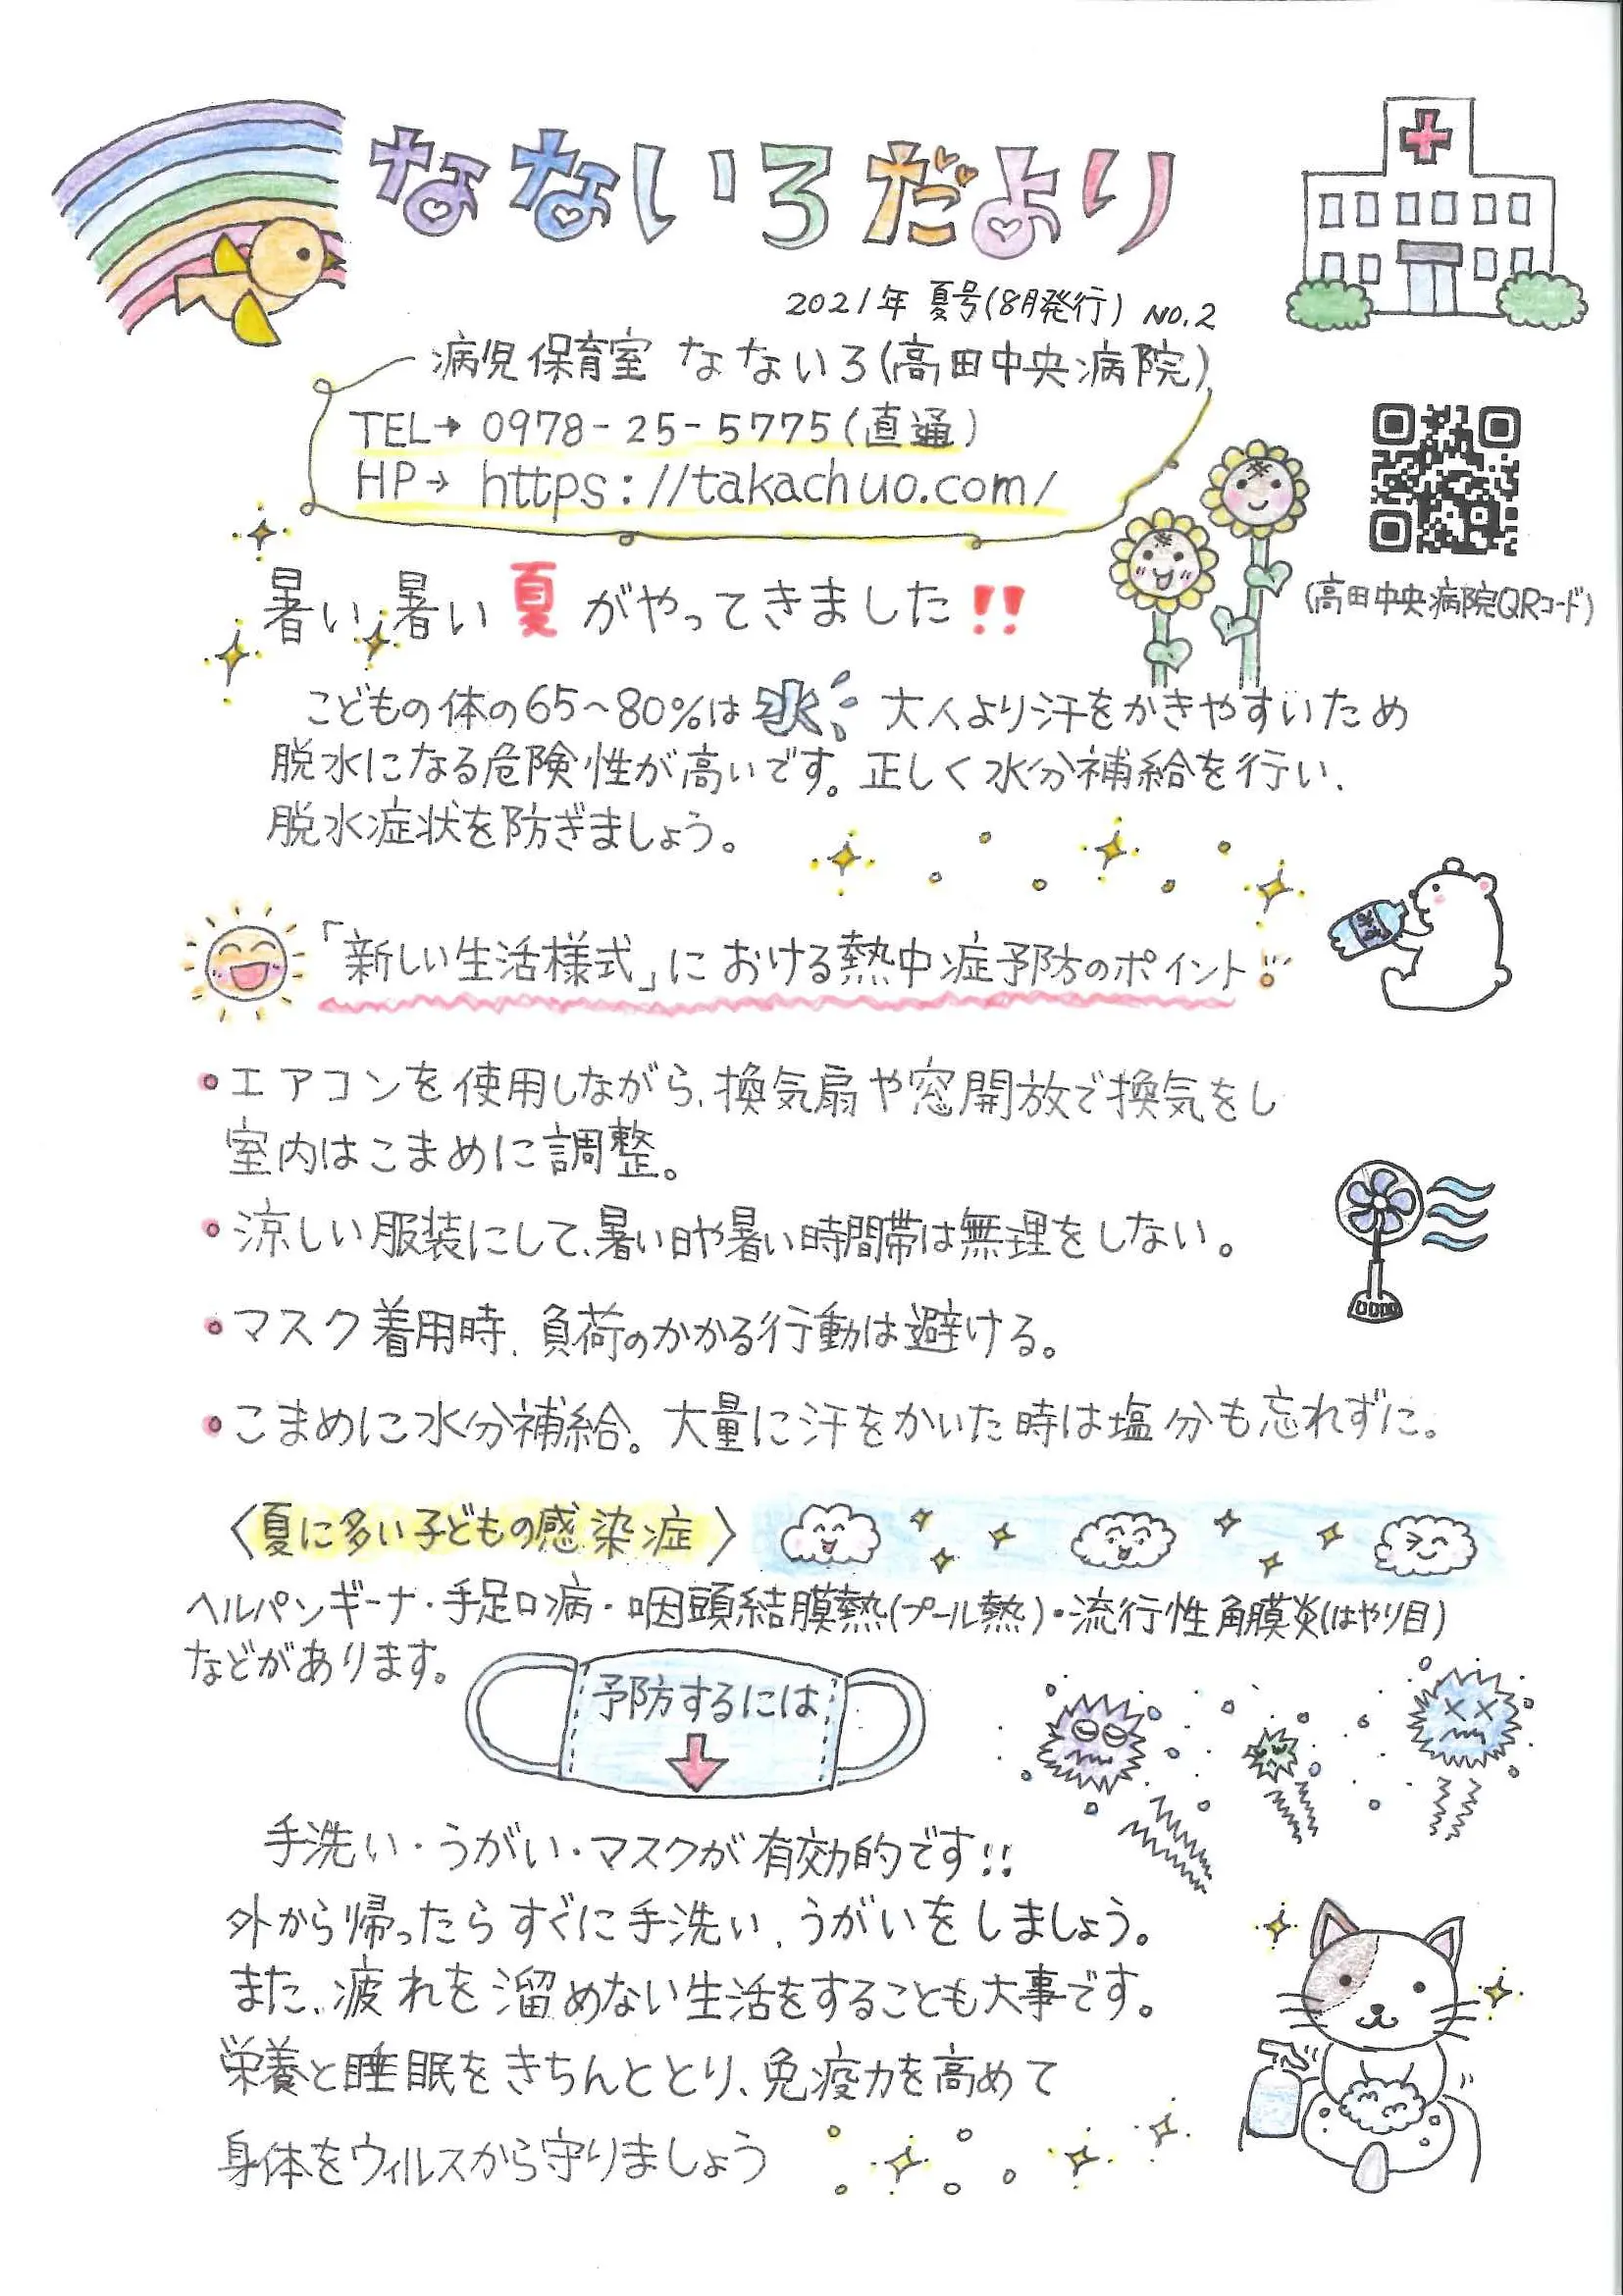 なないろだより
2021年 夏号(8月発行) NO.2
病児保育室 なないろ(高田中央病院)
TEL→ 0978-25-5775(直通)
HP→ https://takachuo.com/
(高田中央病院QRコード)
暑い 暑い 夏 がやってきました!!
こどもの体の65~80%は水 大人より汗をかきやすいため
脱水になる危険性が高いです。正しく水分補給を行い、
脱水症状を防ぎましょう。
「新しい生活様式」における熱中症予防のポイント!
水
・エアコンを使用しながら、換気扇や窓開放で換気をし
室内はこまめに調整。
・涼しい服装にして、暑い日や暑い時間帯は無理をしない。
・マスク着用時、負荷のかかる行動は避ける。
・こまめに水分補給。大量に汗をかいた時は塩分も忘れずに。
〈夏に多い子どもの感染症〉
ヘルパンギーナ・手足口病・咽頭結膜熱(プール熱)・流行性角膜炎(はやり目)
などがあります。
予防するには
手洗い・うがい・マスクが有効的です!!
外から帰ったらすぐに手洗い、うがいをしましょう。
また、疲れを溜めない生活をすることも大事です。
栄養と睡眠をきちんととり、免疫力を高めて
身体をウィルスから守りましょう